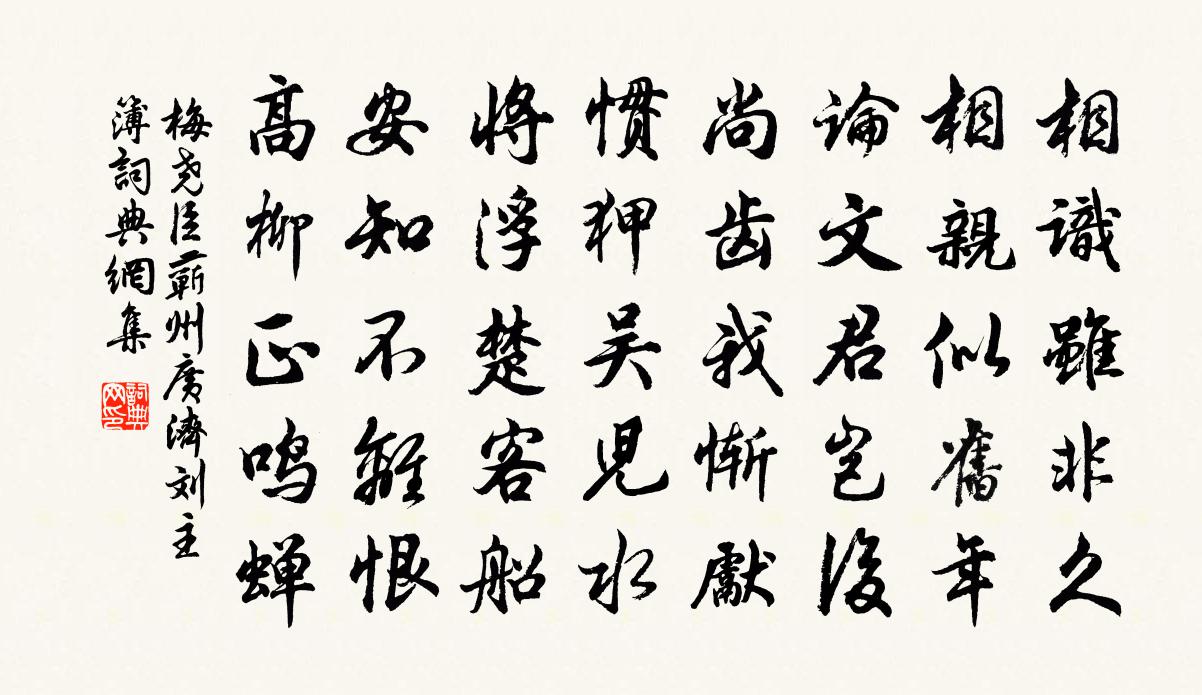 相識雖非久
相親似舊年
論文君豈後
尚齿我慚獻
慣狎吴兒水
將浮楚客船
安知不離恨
高柳正鳴蝉
梅尧臣蘄州廣濟刘主
簿詞典網集
詞典
网印